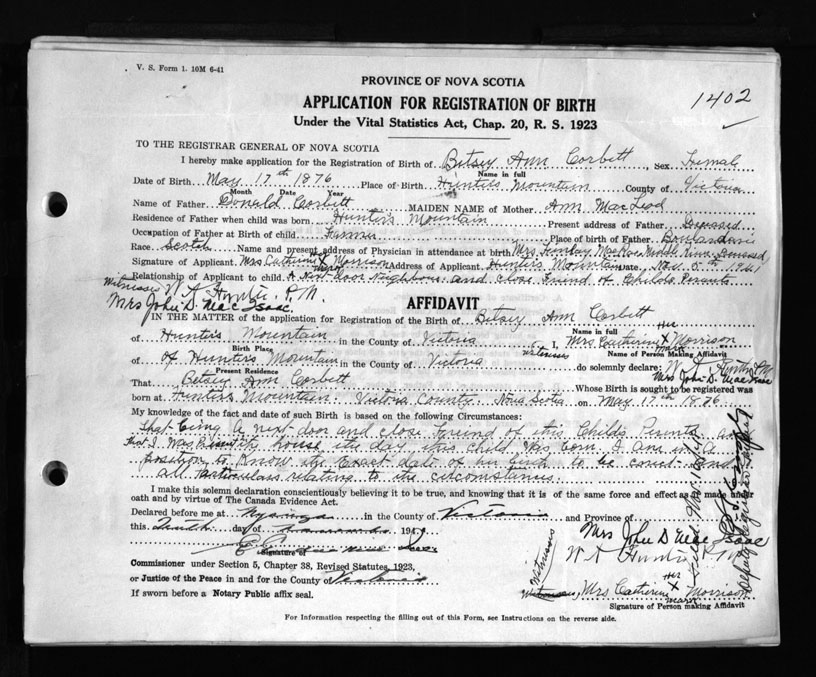 V. S. Form 1. 10M 6-41
PROVINCE OF NOVA SCOTIA
1402
APPLICATION FOR REGISTRATION OF BIRTH
Under the Vital Statistics Act, Chap. 20, R. S. 1923
TO THE REGISTRAR GENERAL OF NOVA SCOTIA
I hereby make application for the Registration of Birth of Betsey Ann Corbett, Sex Female
Name in full
Date of Birth May 17th 1876 Place of Birth Hunter's Mountain County of Victoria
Month Date Year
Name of Father Donald Corbett MAIDEN NAME of Mother Ann MacLeod
Residence of Father when child was born Hunter's Mountain Present address of Father Deceased
Occupation of Father at Birth of child Farmer Place of birth of Father Boulardarie
Race Scotch Name and present address of Physician in attendance at birth Mrs Finlay MacRae Middle River, Deceased
Signature of Applicant Mrs Catherine her X mark Morrison Address of Applicant Hunter's Mountain Date Nov. 5th 1941
Relationship of Applicant to child A Next door Neighbour and close Friend of Childs Parents
Witnesses W. A Hunter P.M.
Mrs John D. MacIsaac.
AFFIDAVIT
IN THE MATTER of the application for Registration of the Birth of Betsey Ann Corbett
Name in full
of Hunter's Mountain in the County of Victoria I, Mrs. Catherine her X mark Morrison
Birth Place
Name of Person Making Affidavit
of Hunter's Mountain in the County of Victoria witnesses do solemnly declare: W. A. Hunter P.M
Present Residence
Mrs. John D. MacIsaac
That Betsey Ann Corbett Whose Birth is sought to be registered was
born at Hunter's Mountain Victoria County Nova Scotia on May 17th 1876
My knowledge of the fact and date of such Birth is based on the following Circumstances:
That being a next door and close Friend of this Childs Parents and
that I Was Present the house the day this child Was born I Am in A
position to Know the Exact date of her birth to be correct and
all Particulars relating to the circumstances.
I make this solemn declaration conscientiously believing it to be true, and knowing that it is of the same force and effect as if made under
oath and by virtue of The Canada Evidence Act.
Declared before me at in the County of Victoria and Province of
this Tenth day of 194
Mrs John D MacIsaac
W A Hunter P.M.
Signature of
Commissioner under Section 5, Chapter 38, Revised Statutes, 1923,
or Justice of the Peace in and for the County of Victoria
Witnesses
Mrs Catherine her X mark Morrison
If sworn before a Notary Public affix seal.
Signature of Person making Affidavit
Deputy Registrar General
For Information respecting the filling out of this Form, see Instructions on the reverse side.